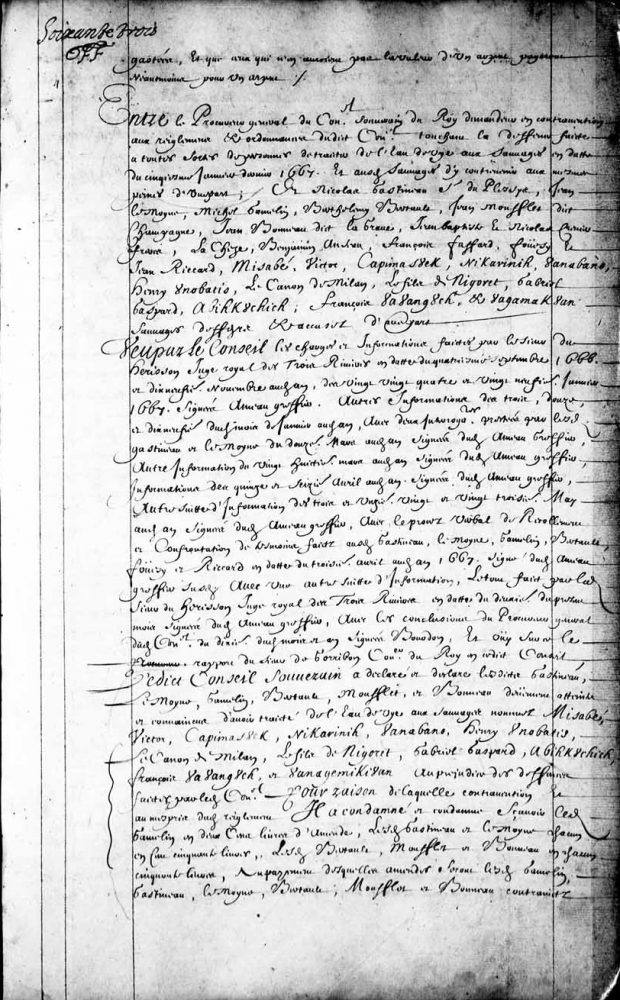 Soixante trois
gastées, Et que aux qui n'en auroient pas la valleur d'un arpent payeront
Neantmoins pour un arpent /.
Entre le Procureur general du Con.el Souverain du Roy demandeur en contravention
aux reglemens Et ordonnances dudict Con.el touchant la deffence faicte
a toutes sortes de personnes de traitter de l'Eau de vye aux Sauvages en datte
du cinquiesme Janvier dernier 1667. Et ausd Sauvages d'y contrevenir aux mesmes
peines d'une part; Et Nicolas Gastineau S.r du Plessys, Jean
lemoyne, Michel Gamelin, Barthelemy Bertault, Jean Moufflet dit
Champagne, Jean Bonneau dict la brane, Jean baptiste Et Nicolas
La Cheze, Benjamin Anseau, François Faffard, fouisy Et
Jean Riccard, Misabé, Victor, Capimas8ek, Nikarinik, 8anabano,
Henry 8nobatis, Le Canon de Milan, Le fils de Nigoret, Gabriel
Gaspard, A8ikk8chich; François 8a8ang8ck, Et 8agamak8an
Sauvages deffendeurs Et accusez d'autre part
Veu par le Conseil les charges et Informations faictes par le Sieur du
herisson Juge royal des Trois Rivieres en datte du quatriesme septembre 1666.
et dixneufies. Novembre aud.an, des vingt vingt quatre et vingt neufies. Janvier
1667. Signées Ameau greffier. Autres Informations des trois, douze,
et dixneufies dud.mois de Janvier aud.an, Avec deux Interog.res prestées par lesd
gastineau et le Moyne du douze. Mars aud.an Signées dud. Ameau Greffier,
Autre Information du vingt huicties. mars aud.an Signée dud. Ameau greffier,
Informations des quinze et seizies Avril aud.an Signées dud. Ameau greffier,
Autre suitte d'Information des trois et unzies. vingt et vingt troisies. May
aud.an Signées dud Ameau greffier, Avec le procez verbal de Recollement
et Confrontation de tesmoins faict ausd. Gastineau, le Moyne, Gamelin, Bertault,
fouisy et Riccard en datte du troisies. avril aud.an 1667. Signé dud Ameau
greffier susd. Avec une autre suitte d'Information, Le tout faict par led.
Sieur du herisson Juge royal des Trois Rivieres en datte du dixies. du present
mois Signées dud Ameau greffier, Avec les conclusions du Procureur general
dud Con.el du dixies. dud.mois et an Signées Bourdon, Et ouy sur ce le
rapport du sieur de Gorribon Con.er du Roy en cedict Conseil
Ledict Conseil Souverain a declaré et declare lesdictz Gastineau,
Le Moyne, Gamelin, Bertault, Moufflet, et Bonneau deüement atteints
et convaincus d'avoir traicté de l'Eau de vye aux Sauvages nommez Misabé,
Victor, Capimas8ek, Nikarinik, 8anabano, Henry 8nobatis,
Le Canon de Milan, Le fils de Nigoret, Gabriel Gaspard, A8ikk8chich,
françois 8a8ang8ck, et 8anagemiki8an Au prejudice des deffences
faictes par led. Con.el Pour raison de laquelle contravention Et
au mespris dud reglement Il a condamné et condamne Sçavoir led
Gamelin en deux Cens livres d'Amende, Lesd. Gastineau et le Moyne chacun
en Cent cinquante livres, Lesd. Bertault, Moufflet et Bonneau en chacun
cinquante livres, Au payement desquelles amendes seront lesd. Gamelin,
Gastineau, le Moyne, Bertault, Moufflet et Bonneau contrainctz